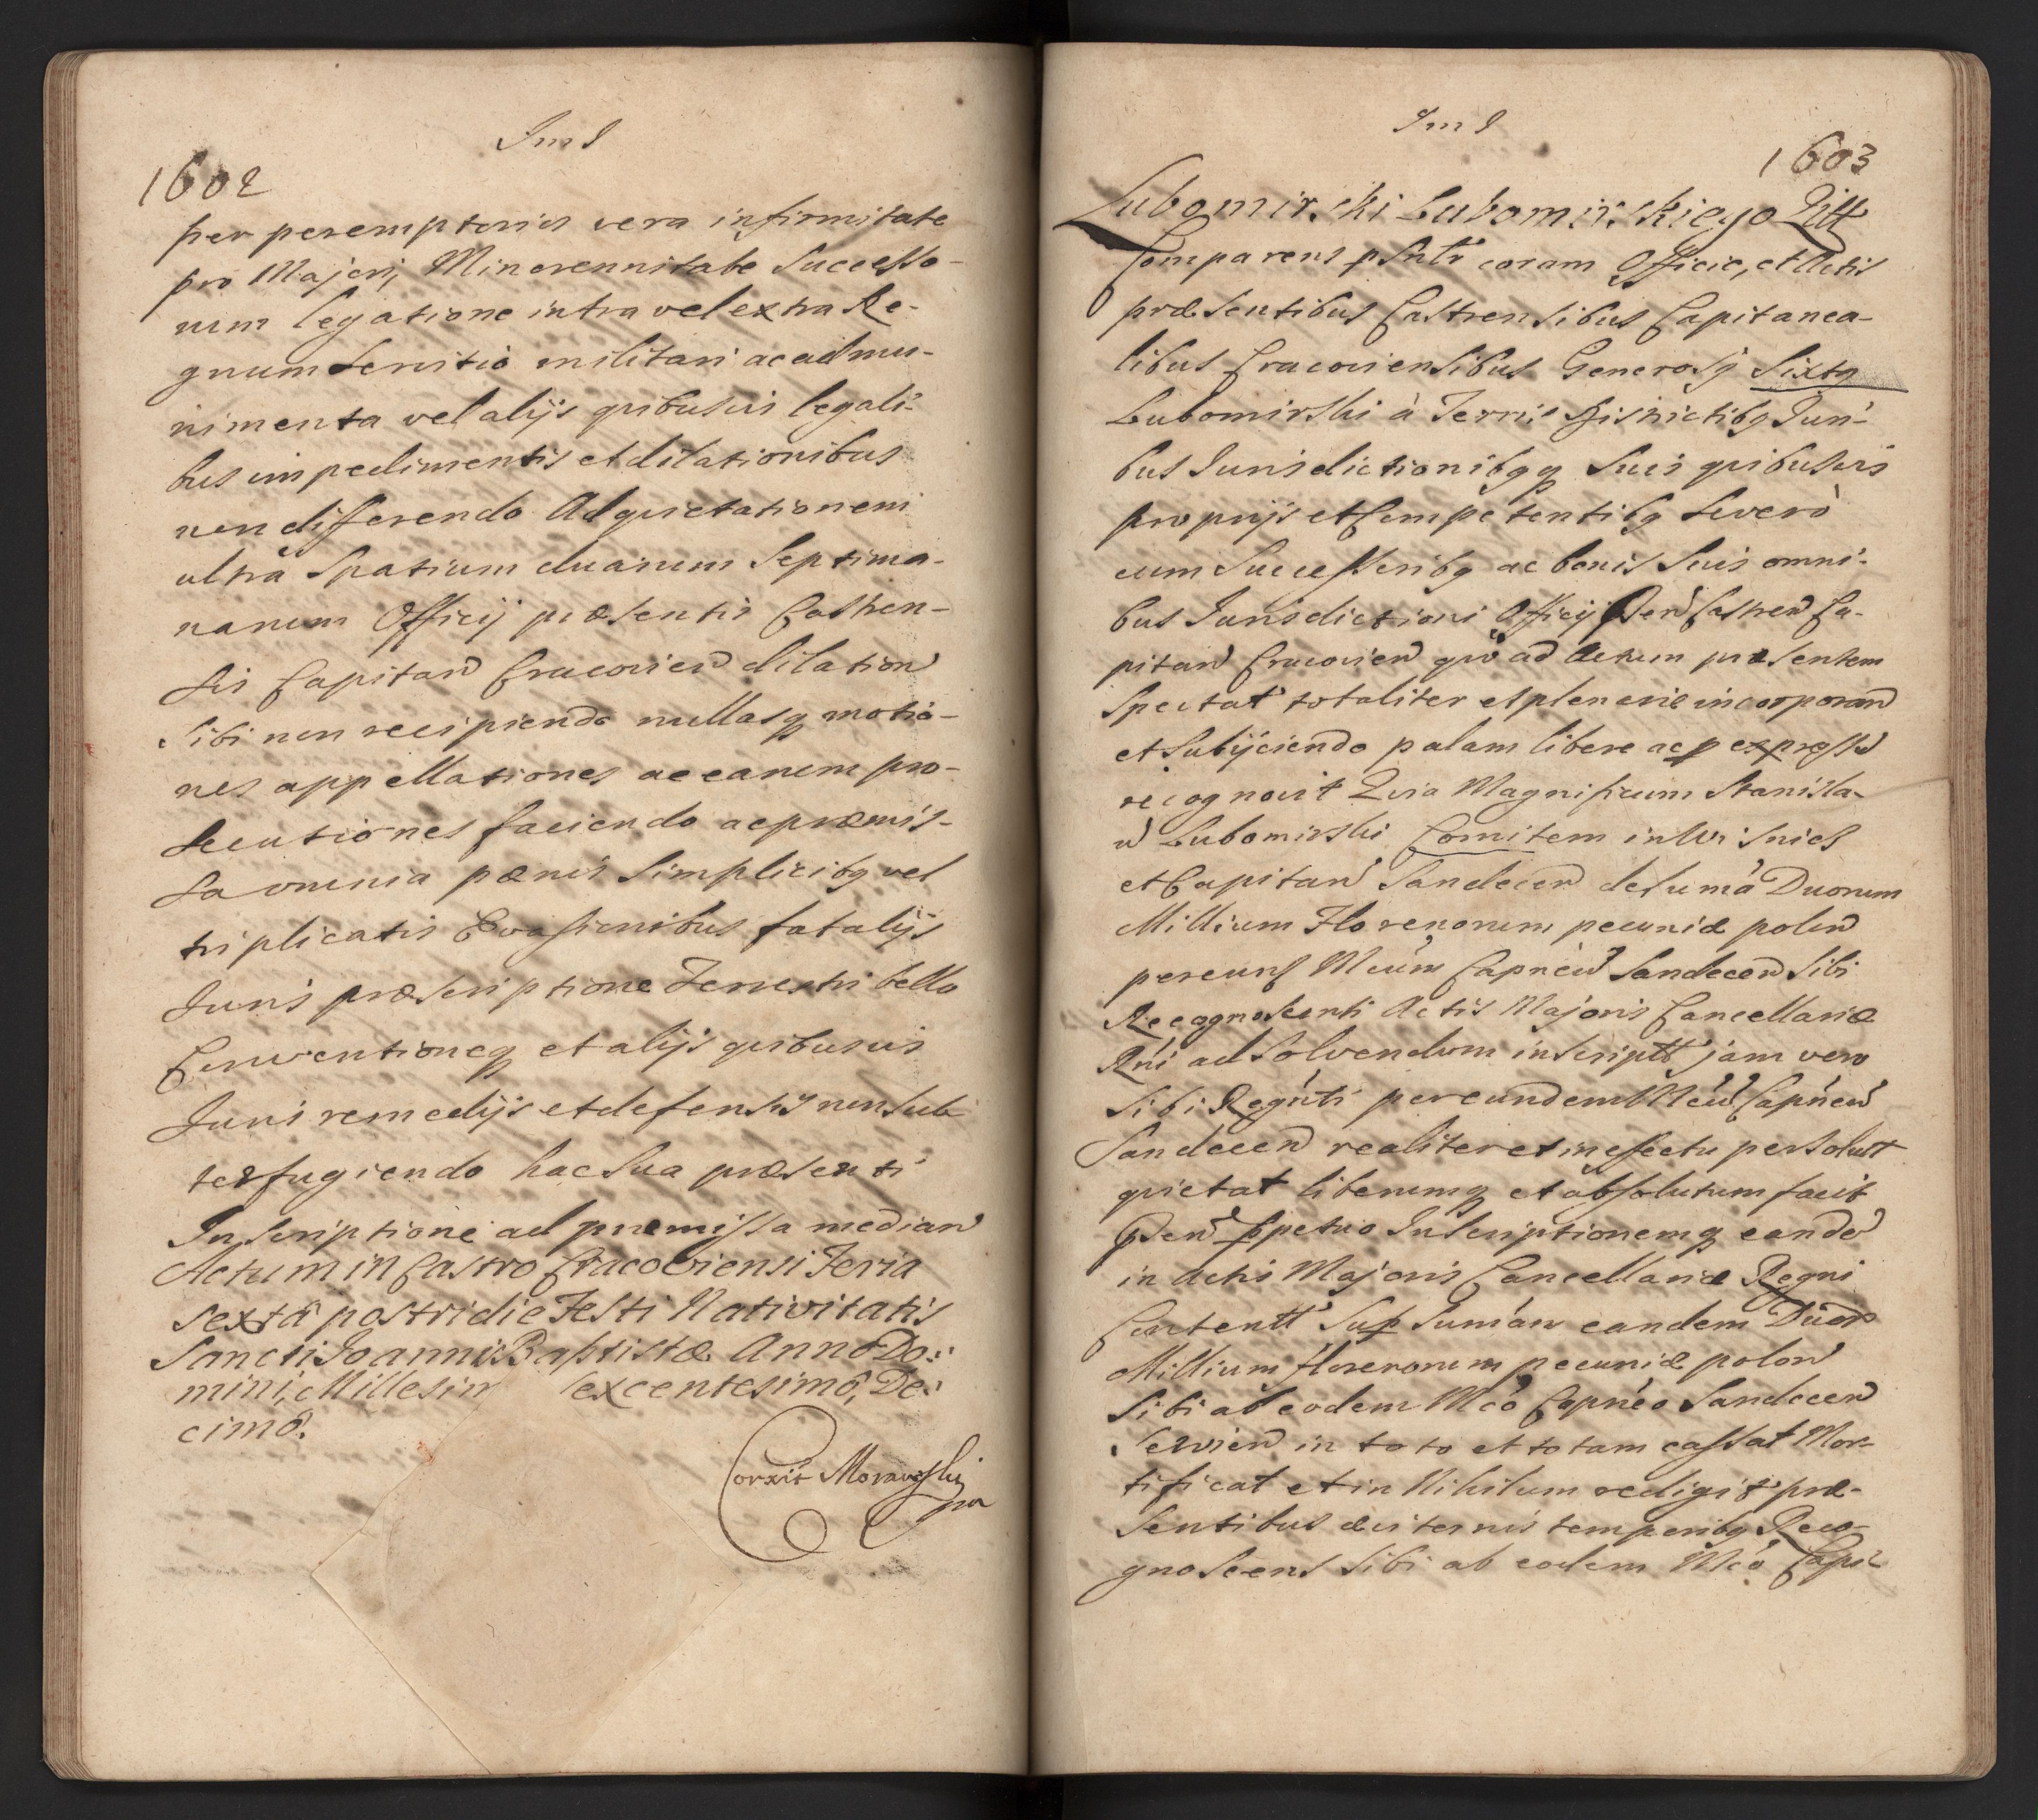 1602
per peremptoria vera infirmitate
pro Majori, Minorennitate Successo-
rum legatione intra vel extra Re-
gnum servitio militari ac ad mu-
nimenta vel alijs quibusvis legali-
bus impedimentis et dilationibus
non differendo Adquietationem
ultra Spatium duarum Septima-
narum Officij præsentis Castren-
sis Capitan Cracovien dilation
sibi non recipiendo nullasq motio-
nes appellationes ac earum pro-
secutiones faciendo ac præmis-
sa omnia pænis Simplicibq vel
triplicatis Evasionibus fatalijs
Juris præscriptione Terrestri bello
Conventioneq et alijs quibusvis
Juris remedijs et defensis non sub-
terfugiendo hac sua præsenti
Inscriptione ad præmissa median
Actum in Castro Cracoviensi Feria
sexta postridie Festi Nativitatis
Sancti Joannis Baptistæ Anno Do-
mini, Millesim sexcentesimo, De-
cimo.
Corxit Moravski
1603
Lubomirski Lubomirskiego Qitt
Comparens psntr coram Officio, et Actis
præsentibus Castrensibus Capitanea-
libus Cracoviensibus Generosq Sixtq
Lubomirski à Terris Districtibq Juri-
bus Jurisdictionibqq suis quibusvis
proprijs et Competentibq severò
cum Successoribq ac bonis suis omni-
bus Jurisdictioni Officij Pen Castren Ca-
pitan Cracovien qvo ad Actum præsentem
Spectat totaliter et plenarie incorporan
et subijciendo palam libere ac p expresse
recognovit Quia Magnificum Stanisla-
w Lubomirski Comitem in Wisnicz
et Capitan Sandecen de sumá Duorum
Millium Florenorum pecuniæ polon
per eund Mcúm Capnéu Sandecen sibi
Recognoscenti Actis Majoris Cancellariæ
Rni ad solvendum inscriptt jam vero
sibi Regnti per eundem Mcú Capnéu
Sandecen realiter et in effectu persolutt
quietat liberumq et absolutum facit
Pen ppetuo Inscriptionemq eande
in Actis Majoris Cancellariæ Regni
Contentt Sup sumán eandem Duor
Millium florenorum pecuniæ polon
sibi ab eodem Mcó Capnéo Sandecen
servien in toto et totam cassat Mor-
tificat et in Nihilum redigit præ-
sentibus æviternis temporibq Reco-
gnoscens sibi ab eodem Mcó Capi-